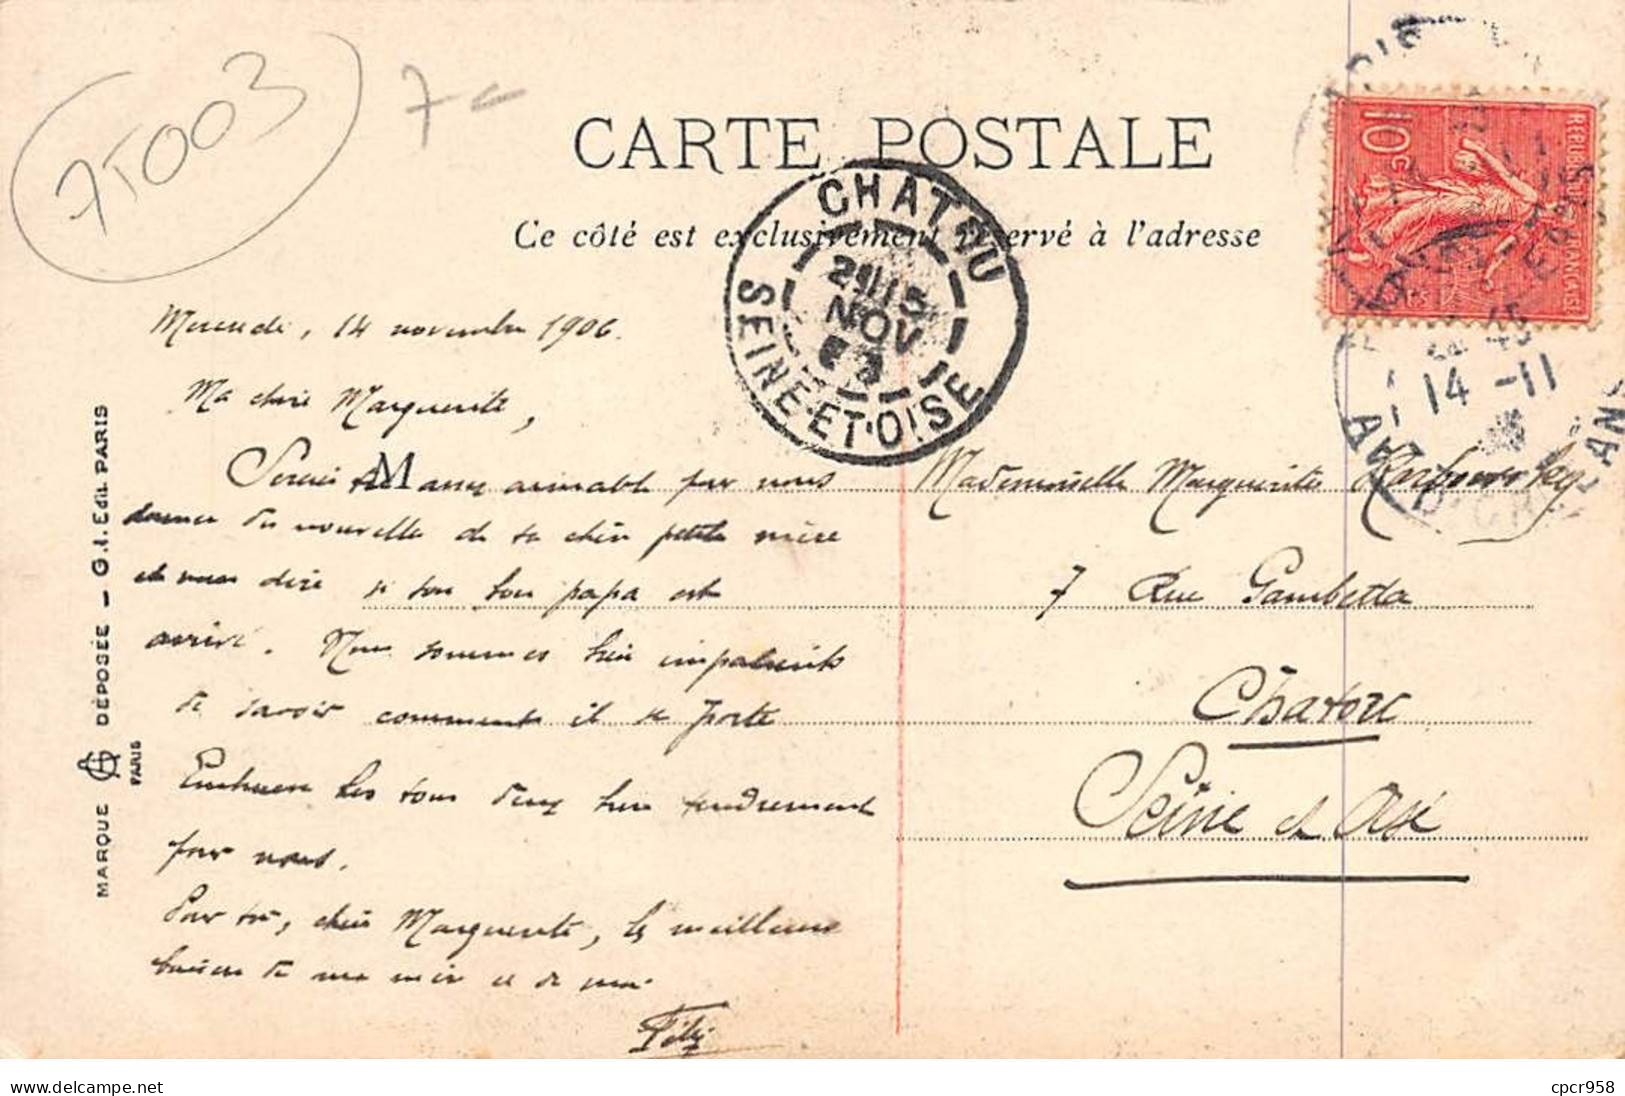 75003
7
CARTE POSTALE
Ce côté est exclusivement réservé à l'adresse
CHATOU
15 NOV
SEINE-ET-OISE
10c
14 -11
Mercredi, 14 novembre 1906.
Ma chère Marguerite,
Serais M assez aimable pour nous
donner des nouvelles de ta chère petite mère
et nous dire si ton bon papa est
arrivé. Nous sommes bien impatients
de savoir comment il se porte
Embrasse les tous deux bien tendrement
pour nous.
Pour toi, chère Marguerite, les meilleurs
baisers de ma mère et de moi.
Mademoiselle Marguerite
7 Rue Gambetta
Chatou
Seine et Oise
MARQUE DÉPOSÉE - G.I. Édit. PARIS
PARIS
cpcr958